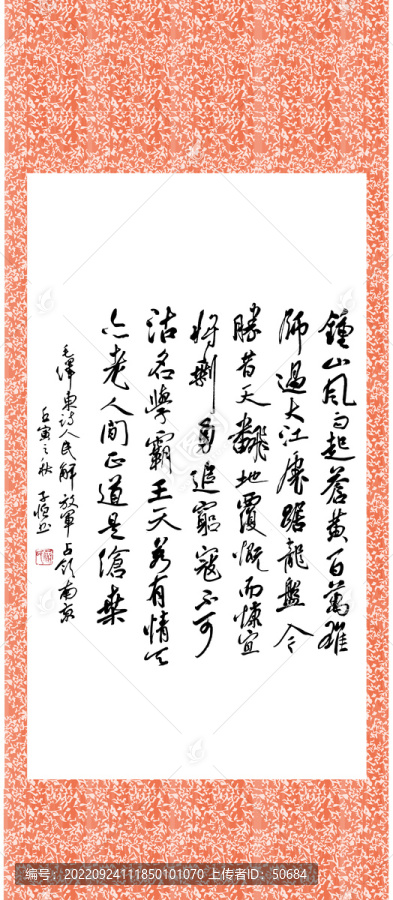 鍾山風雨起蒼黃百萬雄
師過大江虎踞龍盤今
勝昔天翻地覆慨而慷宜
將剩勇追窮寇不可
沽名學霸王天若有情天
亦老人間正道是滄桑
毛澤東詩人民解放軍占領南京
壬寅之秋 子恒书
编号:20220924111850101070 上传者ID:50684